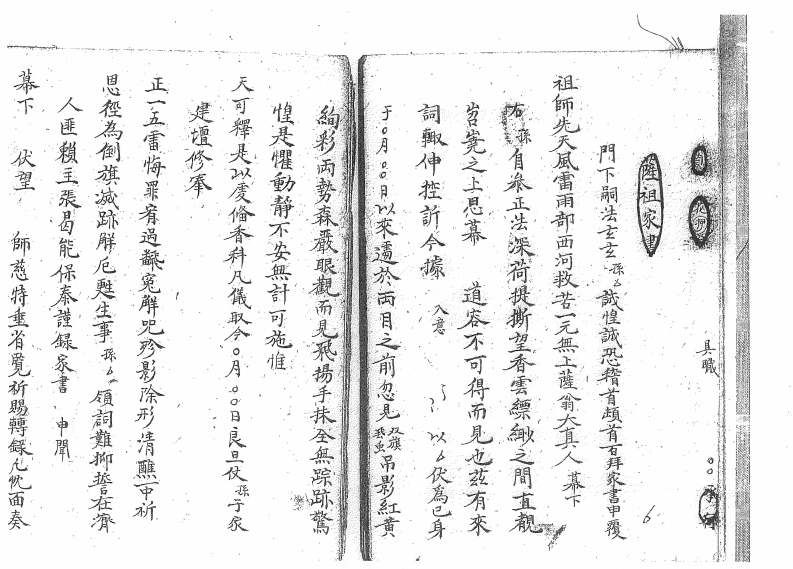 具職
薩祖家書
門下嗣法玄玄孫厶誠惶誠恐稽首頓首百拜家書申覆
祖師先天風雷雨部西河救苦一元無上薩翁大真人 幕下
右孫自參正法深荷提撕望香雲縹緲之間直覩
岧嶤之上思幕 道容不可得而見也茲有來
詞輙伸控訴今據 入意 以厶伏為已身
于〇月〇〇日以來遶於兩目之前忽見双旗飛虫吊影紅黄
絢彩両勢森嚴眼觀而見飛揚手抹全無踪跡驚
惶是懼動靜不安無計可施惟
天可釋是以虔俻香科凡儀取今〇月〇〇日良旦仗孫于家
建壇修奉
正一五雷悔罪宥過觧寃觧咒殄影除形清醮一中祈
恩徑為倒旗滅跡觧厄甦生事孫厶領詞難抑誓在濟
人匪賴主張曷能保泰謹錄家書 申聞
幕下 伏望 師慈特垂省覧祈賜轉錄凡忱面奏
6